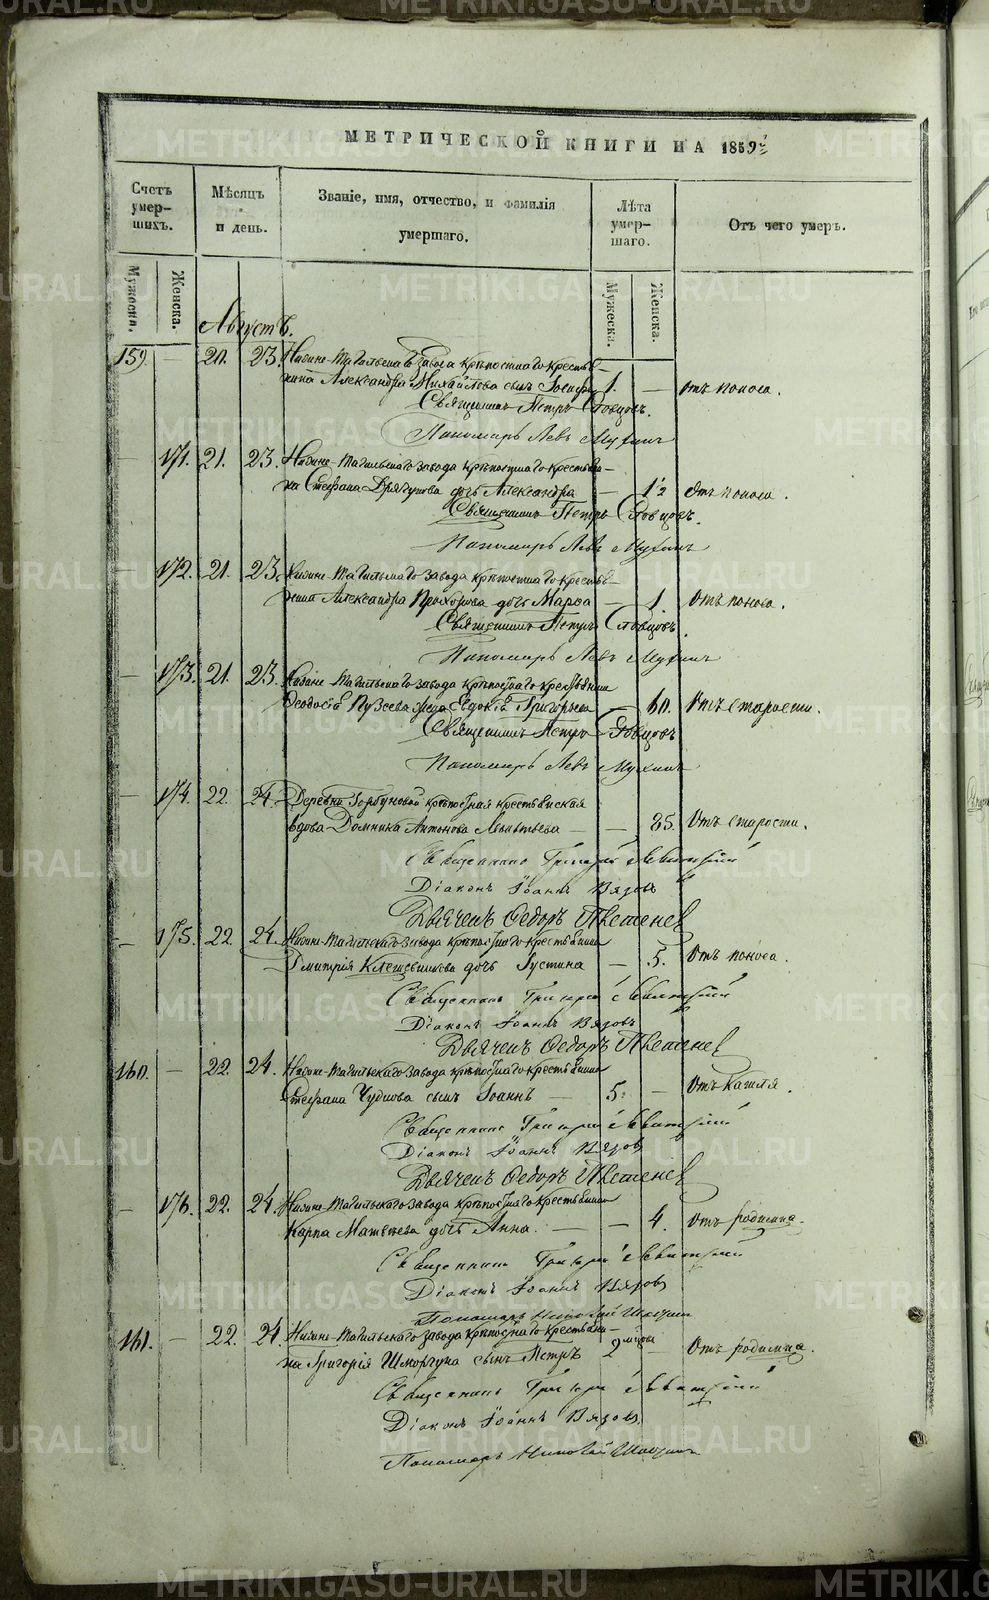 МЕТРИЧЕСКОЙ КНИГИ НА 1859й
Счетъ умер-шихъ.
Мѣсяцъ и день.
Званіе, имя, отчество, и фамилія умершаго.
Лѣта умер-шаго.
Отъ чего умеръ.
Мужеска.
Женска.
Мужеска.
Женска.
Августъ.
159. — 21. 23. Нижне-Тагильскаго завода крѣпостнаго крестья-
нина Александра Михайлова сынъ Іосифъ 1. — отъ поноса.
Священникъ Петръ Словцовъ.
Пономарь Левъ Мухинъ
— 171. 21. 23. Нижне-Тагильскаго завода крѣпостнаго крестьяни-
на Стефана Дрягунова дочь Александра — 1½ Отъ поноса.
Священникъ Петръ Словцовъ.
Пономарь Левъ Мухинъ
— 172. 21. 23. Нижне-Тагильскаго завода крѣпостнаго крестья-
нина Александра Прохорова дочь Марѳа — 1. Отъ поноса.
Священникъ Петръ Словцовъ.
Пономарь Левъ Мухинъ
— 173. 21. 23. Нижне-Тагильскаго завода крѣпостнаго крестьянина
Ѳеодосія Пузеева жена Евдокія Григорьева — 60. Отъ старости.
Священникъ Петръ Словцовъ
Пономарь Левъ Мухинъ
— 174. 22. 24. Деревни Горбуновой крѣпостная крестьянская
вдова Домника Антонова — — 85. Отъ старости.
Священникъ Григорій
Діаконъ Іоаннъ Вязовъ
Дьячекъ Ѳедоръ
— 175. 22. 24. Нижне-Тагильскаго завода крѣпостнаго крестьянина
Дмитрія Клещевникова дочь Іустина — 5. Отъ поноса.
Священникъ Григорій
Діаконъ Іоаннъ Вязовъ
Дьячекъ Ѳедоръ
160. — 22. 24. Нижне-Тагильскаго завода крѣпостнаго крестьянина
Стефана Чудинова сынъ Іоаннъ — 5. — Отъ кашля.
Священникъ Григорій
Діаконъ Іоаннъ Вязовъ
Дьячекъ Ѳедоръ
— 176. 22. 24. Нижне-Тагильскаго завода крѣпостнаго крестьянина
Карпа Матвѣева дочь Анна. — — 4. Отъ родимца.
Священникъ Григорій
Діаконъ Іоаннъ Вязовъ
Пономарь Николай
161. — 22. 24. Нижне-Тагильскаго завода крѣпостнаго крестьяни-
на Григорія Шморгуна сынъ Петръ 2 — Отъ родимца.
Священникъ Григорій
Діаконъ Іоаннъ Вязовъ.
Пономарь Николай
METRIKI.GASO-URAL.RU